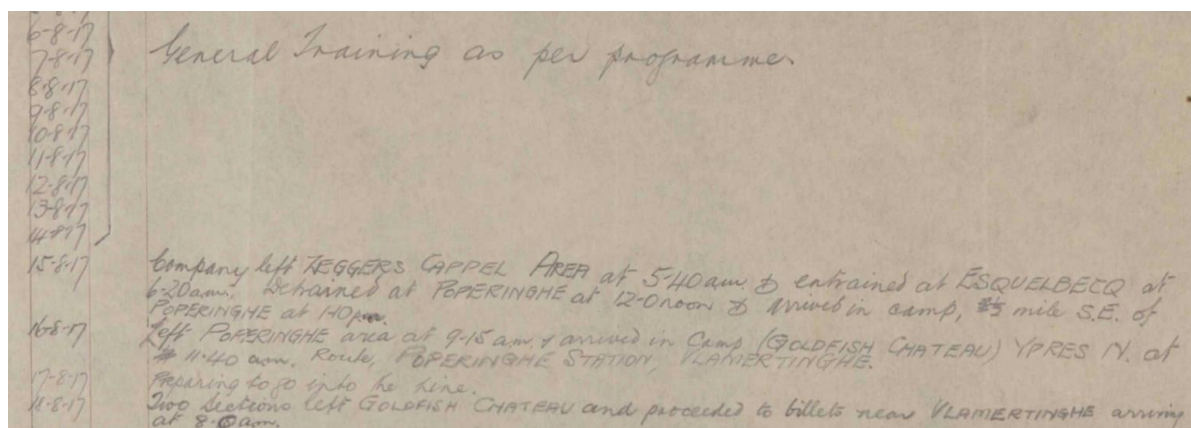 6-8-17
7-8-17 General Training as per programme.
8-8-17
9-8-17
10-8-17
11-8-17
12-8-17
13-8-17
14-8-17
15-8-17 Company left ZEGGERS CAPPEL AREA at 5-40 am. & entrained at ESQUELBECQ at
6-20 a.m. Detrained at POPERINGHE at 12-0 noon & arrived in camp, mile S.E. of
POPERINGHE at 1-10 pm.
16-8-17 Left POPERINGHE area at 9-15 a.m. & arrived in Camp (GOLDFISH CHATEAU) YPRES N. at
11.40 a.m. Route, POPERINGHE STATION, VLAMERTINGHE.
17-8-17 Preparing to go into the Line.
18-8-17 Two Sections left GOLDFISH CHATEAU and proceeded to billets near VLAMERTINGHE arriving
at 8.0 am.